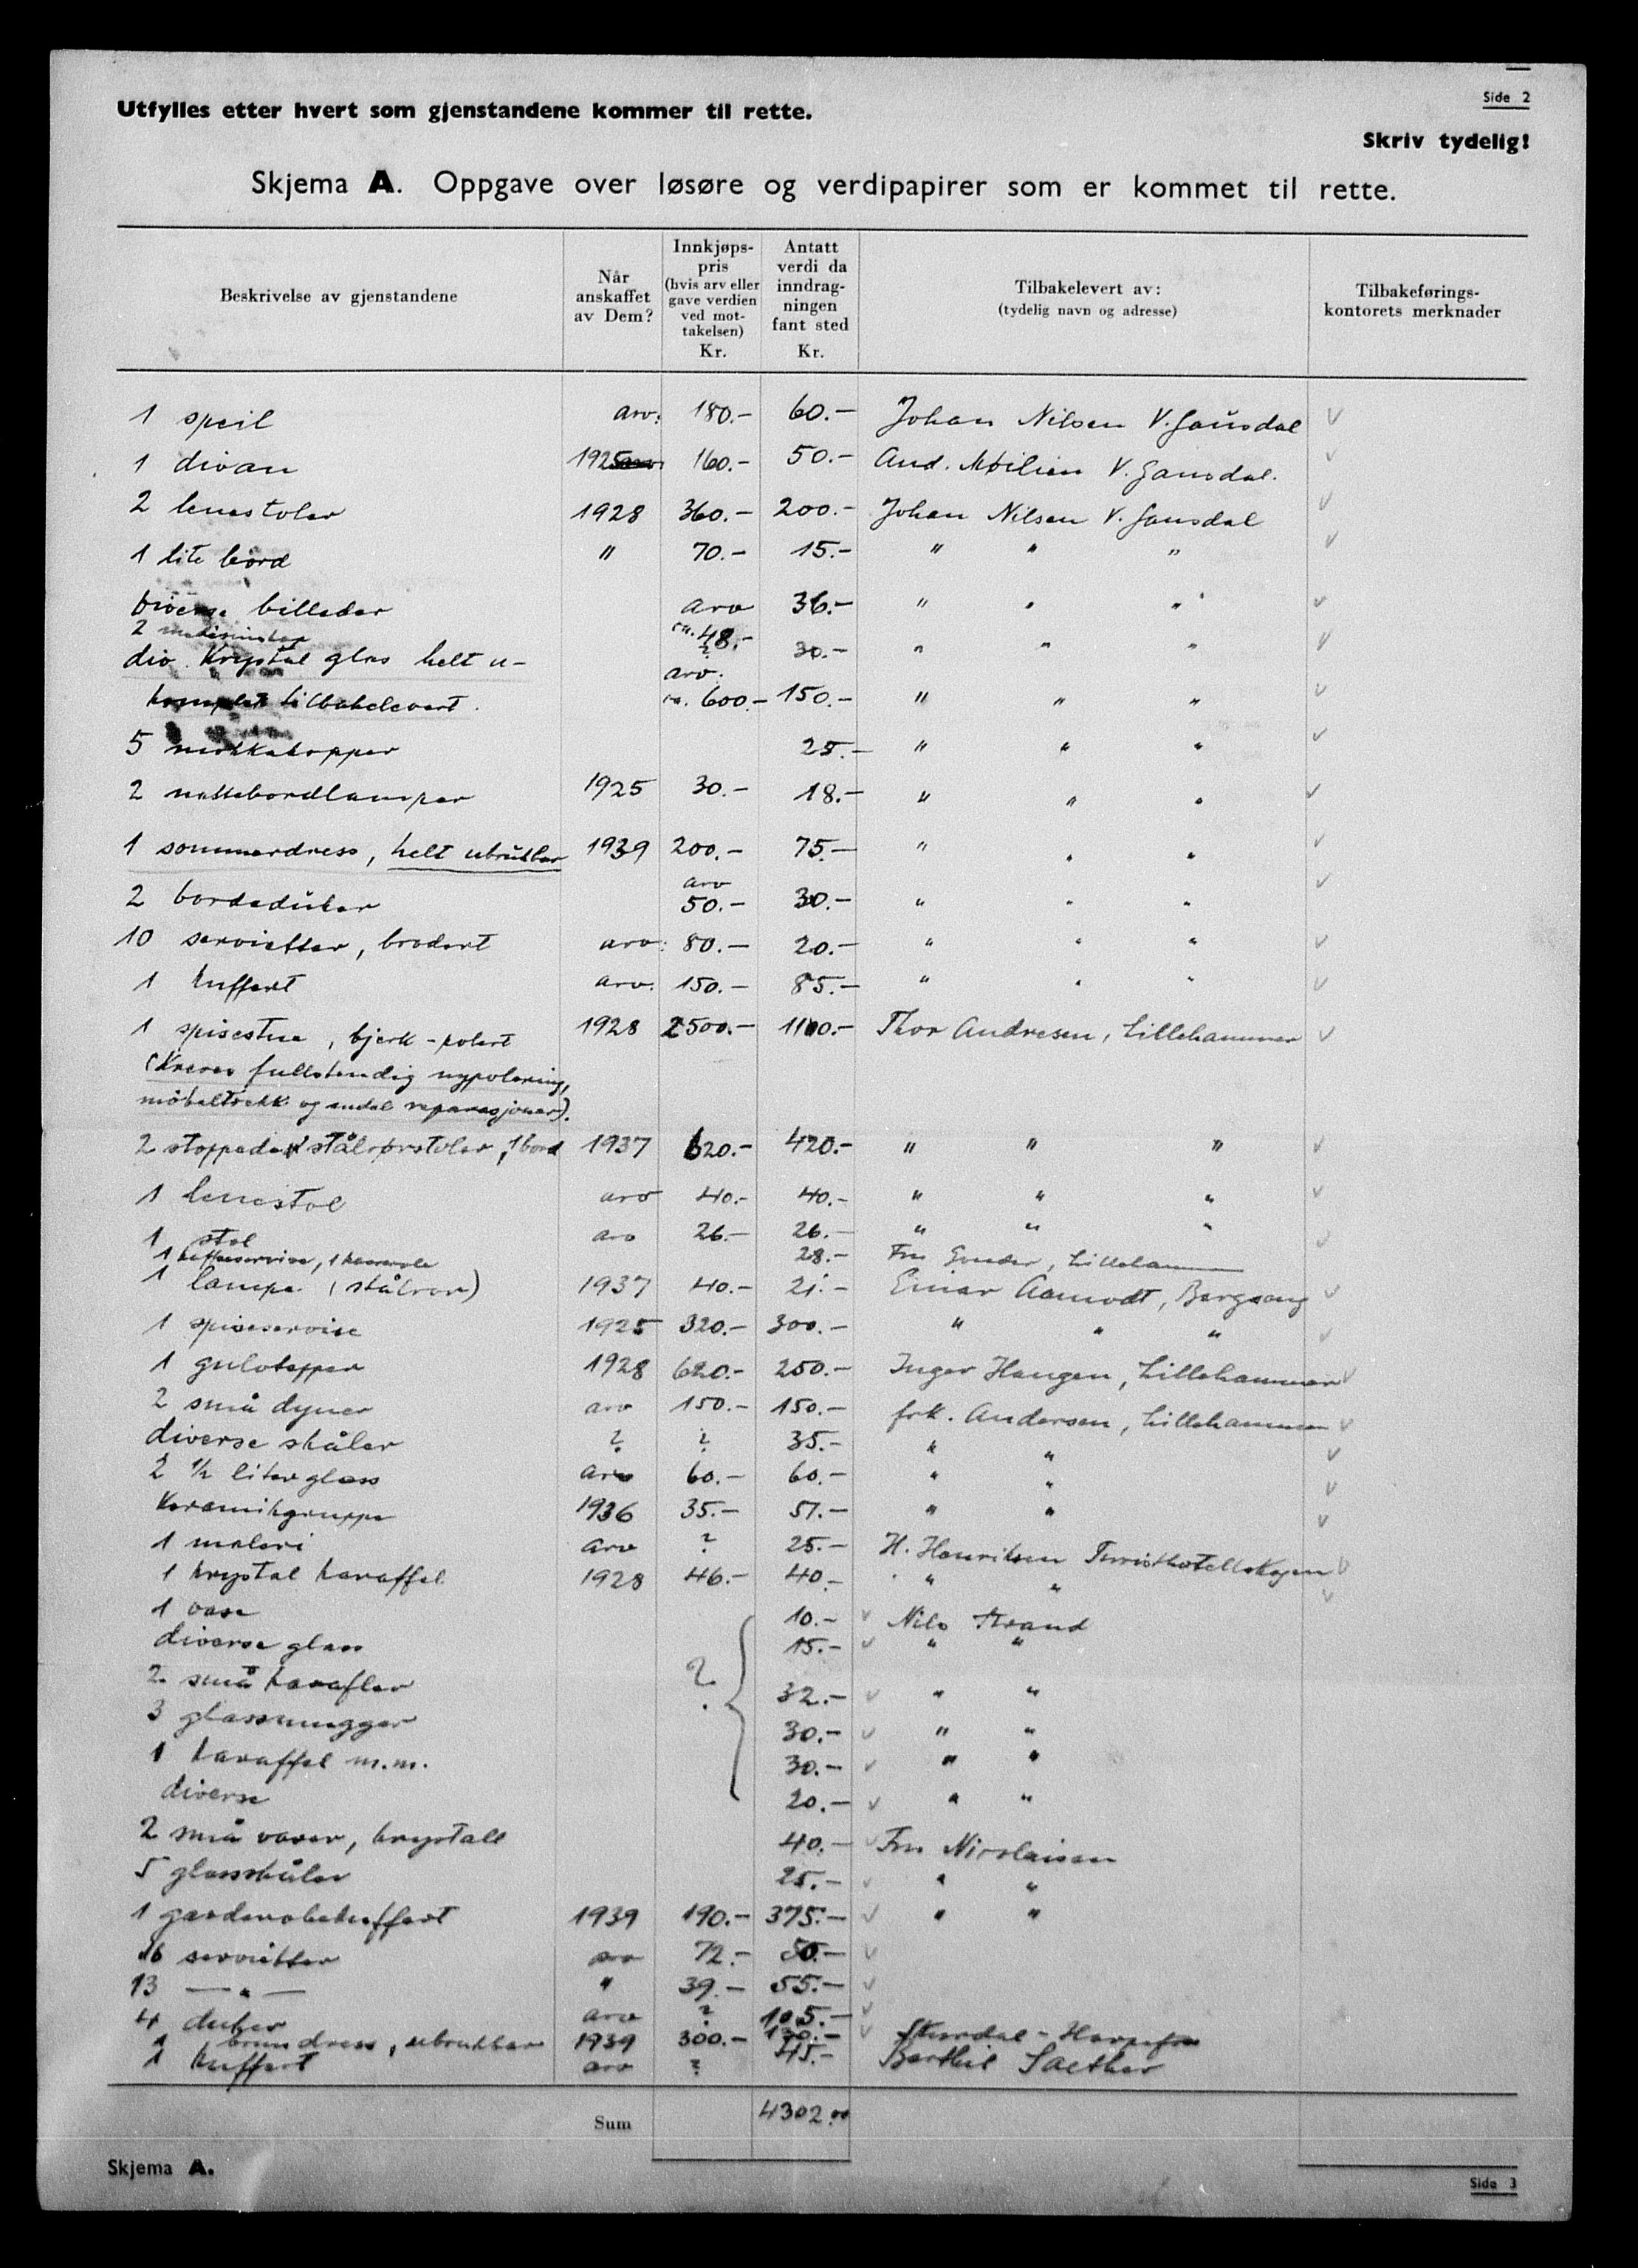 Side 2
Utfylles etter hvert som gjenstandene kommer til rette.
Skriv tydelig!
Skjema A. Oppgave over løsøre og verdipapirer som er kommet til rette.
Beskrivelse av gjenstandene
Når anskaffet av Dem?
Innkjøps-pris (hvis arv eller gave verdien ved mot-takelsen) Kr.
Antatt verdi da inndrag-ningen fant sted Kr.
Tilbakelevert av: (tydelig navn og adresse)
Tilbakeførings-kontorets merknader
1 speil arv. 180.- 60.- Johan Nilsen V. Gausdal
1 divan 1925 160.- 50.- And. V. Gausdal.
2 lenestoler 1928 360.- 200.- Johan Nilsen V. Gausdal
1 lite bord " 70.- 15.- " " "
Diverse billeder arv 36.- " " "
2 ca. 48.- 30.- " " "
div. Krystal glas helt u- arv.
komplet tilbakelevert. ca. 600.- 150.- " " "
5 mokkakopper 25.- " " "
2 nattbordlamper 1925 30.- 18.- " " "
1 sommerdress, helt ubrukbar 1939 200.- 75.- " " "
2 bordduker arv 50.- 30.- " " "
10 servietter, brodert arv: 80.- 20.- " " "
1 kuffert arv. 150.- 85.- " " "
1 spisestue, bjerk-polert 1928 2500.- 1100.- Thor Andresen, Lillehammer
(Kreves fullstendig nypolering,
møbeltrekk og endel reparasjoner).
2 stoppede stålrørstoler, 1 bord 1937 620.- 420.- " " "
1 lenestol arv 40.- 40.- " " "
1 stol arv 26.- 26.- " " "
1 kaffeservise, 1 28.- Fru Lillehammer
1 lampe (stålrør) 1937 40.- 21.- Einar Aamodt, Bergseng
1 spiseservise 1925 320.- 300.- " " "
1 gulvtepper 1928 620.- 250.- Inger Haugen, Lillehammer
2 små dyner arv 150.- 150.- frk. Andersen, Lillehammer
diverse skåler ? ? 35.- " "
2 ½ liter glass arv 60.- 60.- " "
Keramikgruppe 1936 35.- 51.- " "
1 maleri arv ? 25.- H. Henriksen Turisthotellskogen
1 krystal karaffel 1928 46.- 40.- " "
1 vase 10.- Nils Strand
diverse glass 15.- " "
2 små karafler ? 32.- " "
3 glassmugger 30.- " "
1 karaffel m.m. 30.- " "
diverse 20.- " "
2 små vaser, krystall 40.- Fru Nicolaisen
5 glasskåler 25.- " "
1 garderobekuffert 1939 190.- 375.- " "
16 servietter arv 72.- 50.-
13 — " — " 39.- 55.-
4 duker arv ? 105.-
1 brun dress, ubrukbar 1939 300.- 130.-
1 kuffert arv ? 45.- Berthil Saether
Sum 4302.00
Skjema A.
Side 3